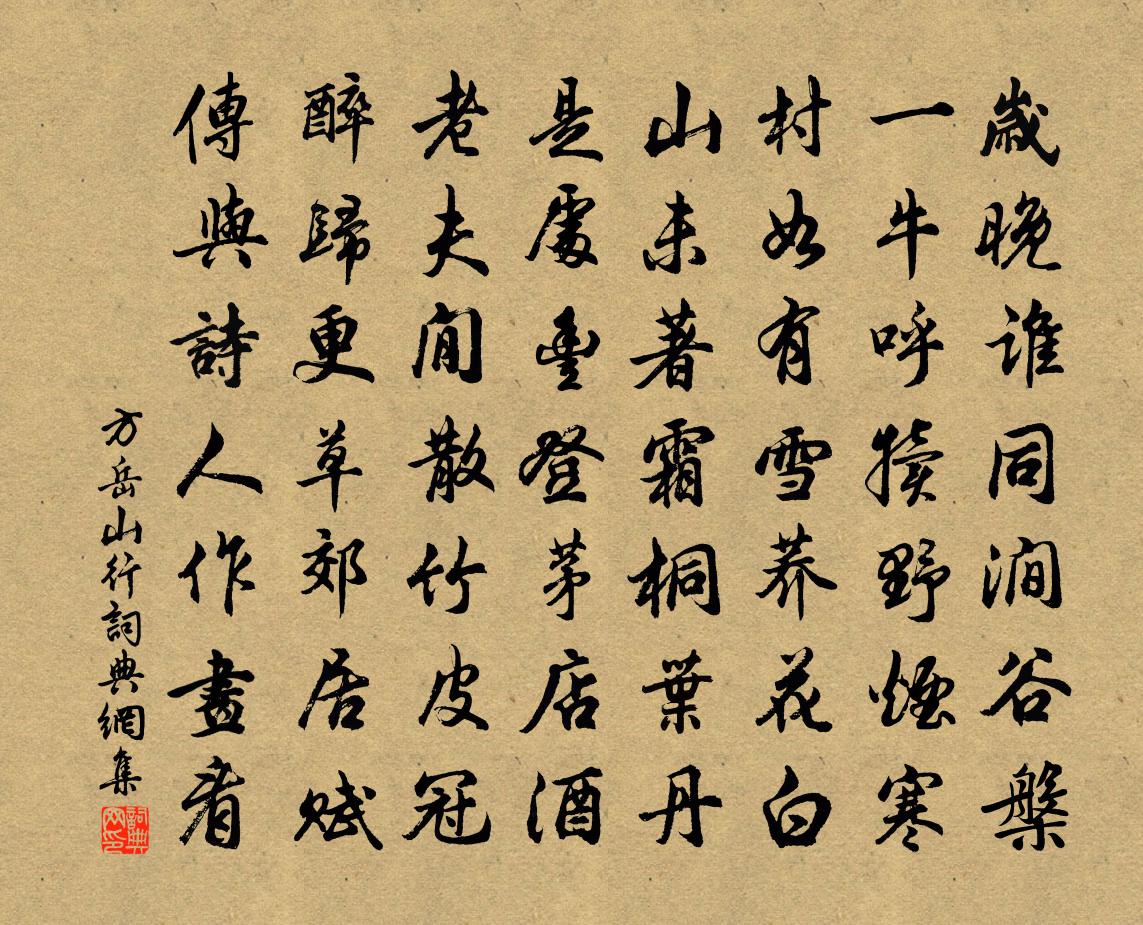 歲晚誰同澗谷槃
一牛呼犢野煙寒
村如有雪蕎花白
山未著霜桐葉丹
是處豐登茅店酒
老夫閒散竹皮冠
醉歸更草郊居賦
傳與詩人作畫看
方岳山行詞典網集
詞典網印